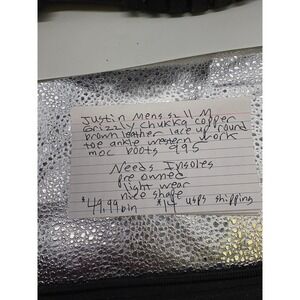 Justin Mens sz 11 M
Grizzly Chukka copper
brown leather lace up round
toe ankle western work
moc boots 995
Needs Insoles
pre owned
light wear
nice shape
$49.99 bin $14 usps shipping